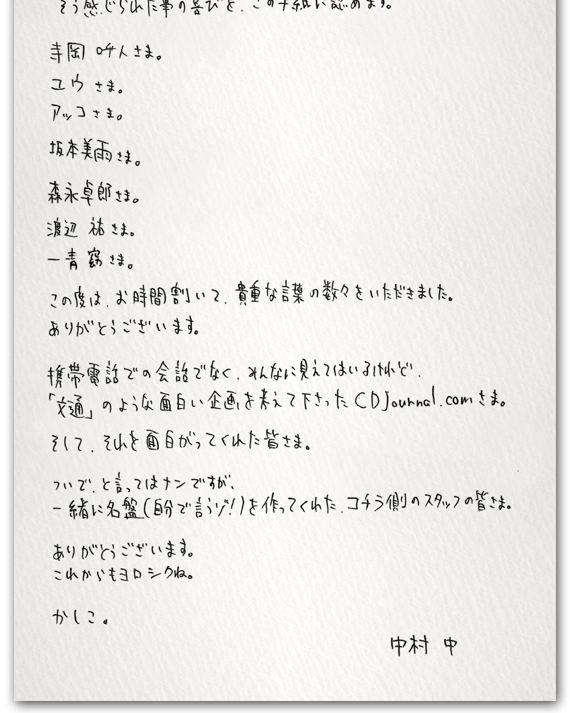 そう感じられた事の喜びを、この手紙に認めます。
寺岡 呼人さま。
ユウ さま。
アッコさま。
坂本美雨さま。
森永卓郎さま。
渡辺 祐さま。
一青 窈さま。
この度は、お時間割いて、貴重な言葉の数々をいただきました。
ありがとうございます。
携帯電話での会話でなく、みんなに見えてはいるけれど、
「交通」のような面白い企画を考えて下さったCDJournal.comさま。
そして、それを面白がってくれた皆さま。
ついで、と言ってはナンですが、
一緒に名盤(自分で言うゾ!)を作ってくれた、コチラ側のスタッフの皆さま。
ありがとうございます。
これからもヨロシクね。
かしこ。
中村 中